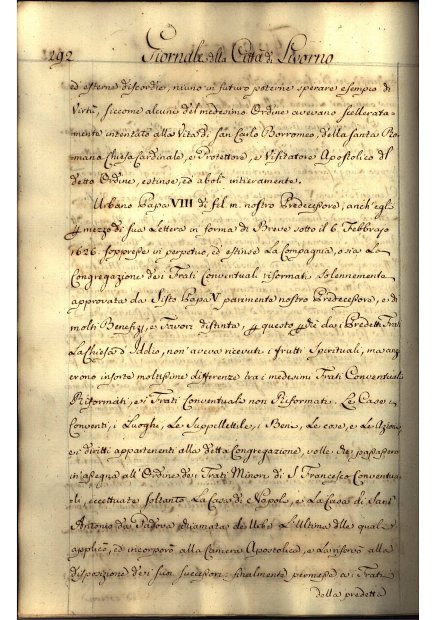 292 Giornale della Città di Livorno
ed esterne discordie, niuno in futuro poterne sperare esempio di
Virtù, siccome alcuni del medesimo Ordine avevano scellerata-
mente intentato alla Vita di San Carlo Borromeo, della Santa Ro-
mana Chiesa Cardinale, e Protettore, e Visitatore Apostolico dl
detto Ordine, estinse, ed abolì intieramente.
Urbano Papa VIII di fel. m. nostro Predecessore, anch'egli
mezzo di sua Lettera in forma di Breve sotto il 6. Febbrajo
1626. soppresse in perpetuo, ed estinse la Compagnia, o sia la
Congregazione dei Frati Conventuali riformati solennemente
approvata da Sisto Papa V parimente nostro Predecessore, e di
molti Benefizj, e Favori distinta, questo dai Predetti Frati
la Chiesa d'Iddio, non aveva ricevuti i frutti Spirituali, ma anzi
erono insorte moltissime differenze tra i medesimi Frati Conventuali
Riformati, e i Frati Conventuali non Riformati. Le Case
Conventi, i Luoghi, le Suppellettili, i Beni, le cose, e le Azioni,
e i diritti appartenenti alla detta Congregazione, volle che passassero
in assegna all'Ordine dei Frati Minori di S. Francesco Conventua-
li, eccettuate soltanto la Casa di Napoli, e la Casa di Sant'
Antonio da Padova chiamata de Urbe. L'Ultima delle quali
applicò, ed incorporò alla Camera Apostolica, e la riservò alla
disposizione dei suoi successori: finalmente permesse ai Frati
della predetta